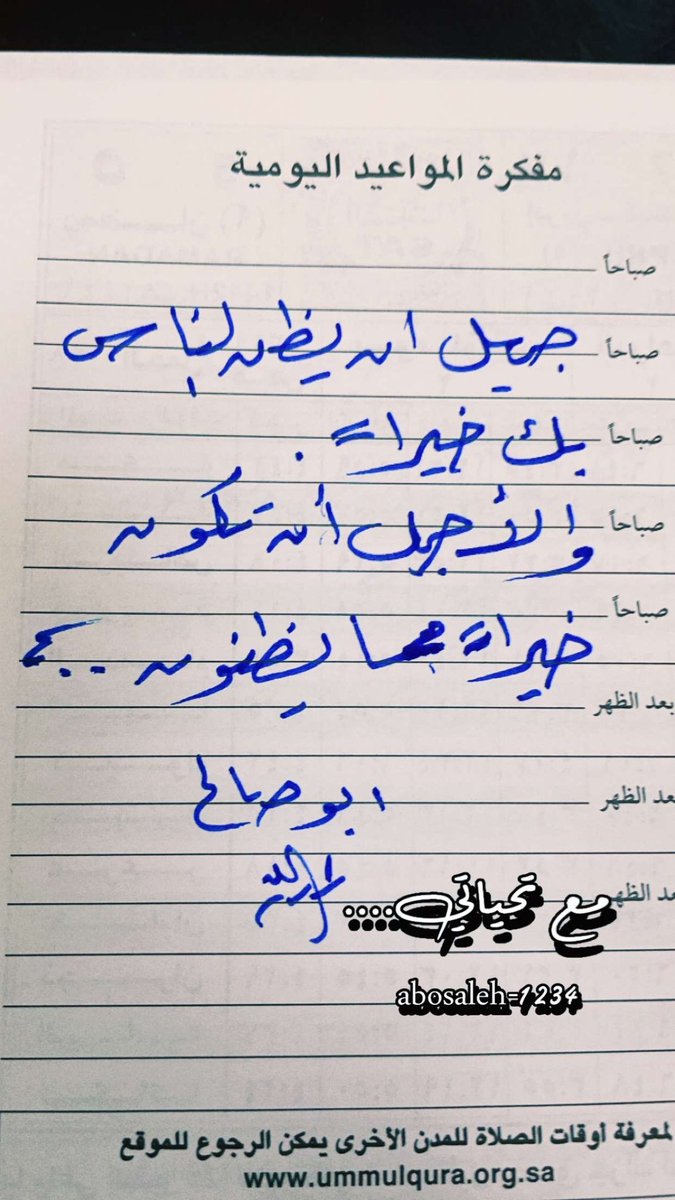 مفكرة المواعيد اليومية
صباحاً
صباحاً
جميل ان يظن الناس
صباحاً
بك خيراً .
صباحاً
والأجمل أن تكون
صباحاً
خيراً مما يظنون ..
بعد الظهر
بعد الظهر
ابو صالح
بعد الظهر
مع تحياتي....
abosaleh-1234
لمعرفة أوقات الصلاة للمدن الأخرى يمكن الرجوع للموقع
www.ummulqura.org.sa